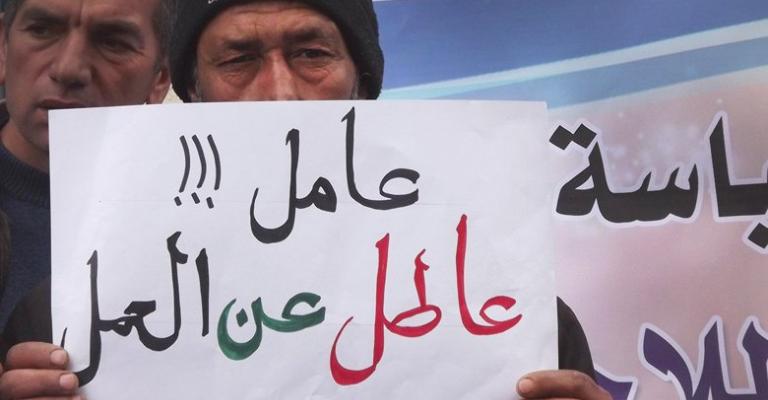 عامل !!!
عاطل عن العمل